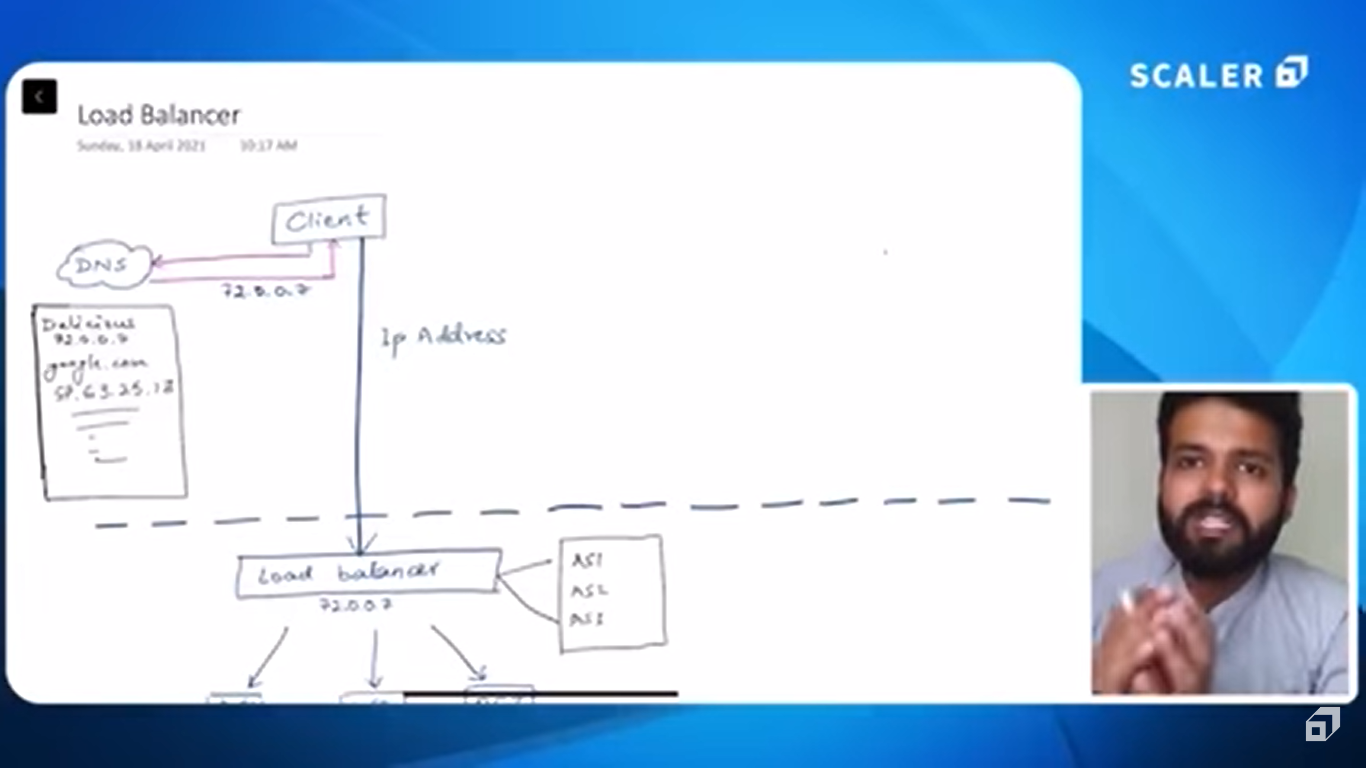 SCALER
Load Balancer
Sunday, 18 April 2021 10:17 AM
Client
DNS
72.0.0.7
Delicious
72.0.0.7
google.com
.63.25.13
Ip Address
Load balancer
72.0.0.7
AS1
AS2
AS3